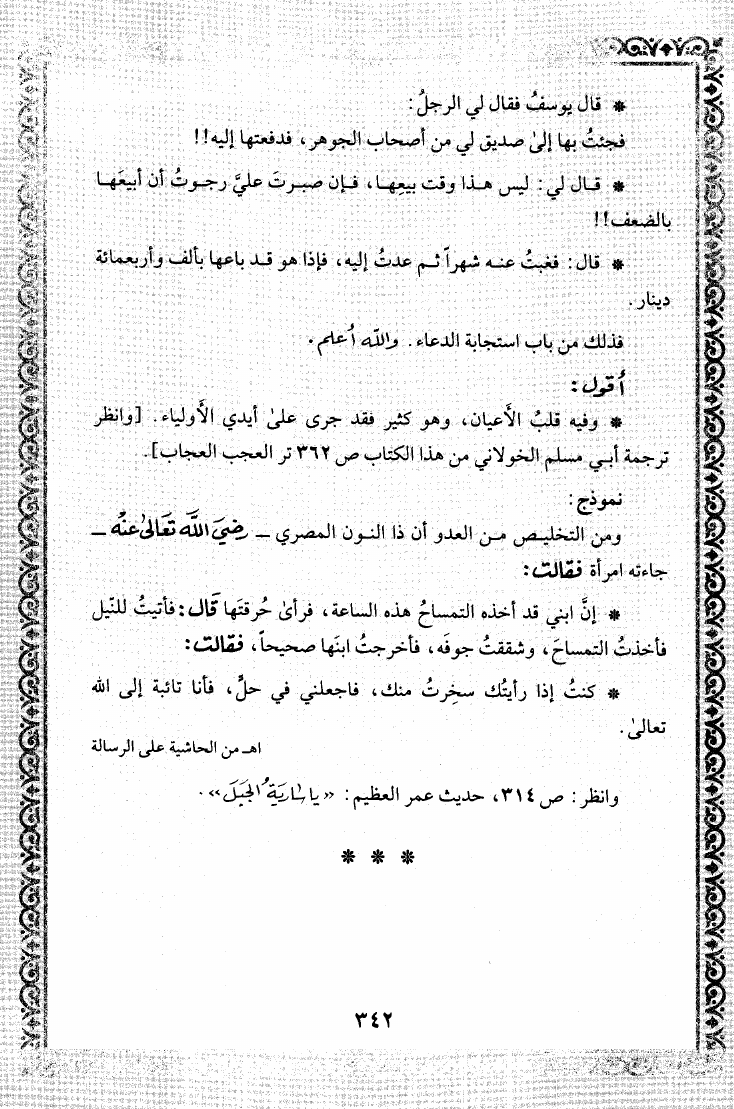 * قال يوسفُ فقال لي الرجلُ:
فجئتُ بها إلىٰ صديق لي من أصحاب الجوهر، فدفعتها إليه!!
* قال لي: ليس هذا وقت بيعِها، فإن صبرتَ عليَّ رجوتُ أن أبيعَها
بالضعف!!
* قال: فغبتُ عنه شهراً ثم عدتُ إليه، فإذا هو قد باعها بألف وأربعمائة
دينار.
فذلك من باب استجابة الدعاء. والله أعلم.
أقول:
* وفيه قلبُ الأعيان، وهو كثير فقد جرى علىٰ أيدي الأولياء. [وانظر
ترجمة أبي مسلم الخولاني من هذا الكتاب ص ٣٦٢ تر العجب العجاب].
نموذج:
ومن التخليص من العدو أن ذا النون المصري ــ رضيَ اللَّه تعَالىٰ عنْهُ ــ
جاءته امرأة فقالت:
* إنَّ ابني قد أخذه التمساحُ هذه الساعة، فرأىٰ حُرقتَها قال: فأتيتُ للنّيل
فأخذتُ التمساحَ، وشققتُ جوفَه، فأخرجتُ ابنَها صحيحاً، فقالت:
* كنتُ إذا رأيتُك سخِرتُ منك، فاجعلني في حلٍّ، فأنا تائبة إلى الله
تعالىٰ.
اهـ من الحاشية على الرسالة
وانظر: ص ٣١٤، حديث عمر العظيم: «يا سَاريَةُ الجَبَلَ».
* * *
٣٤٢